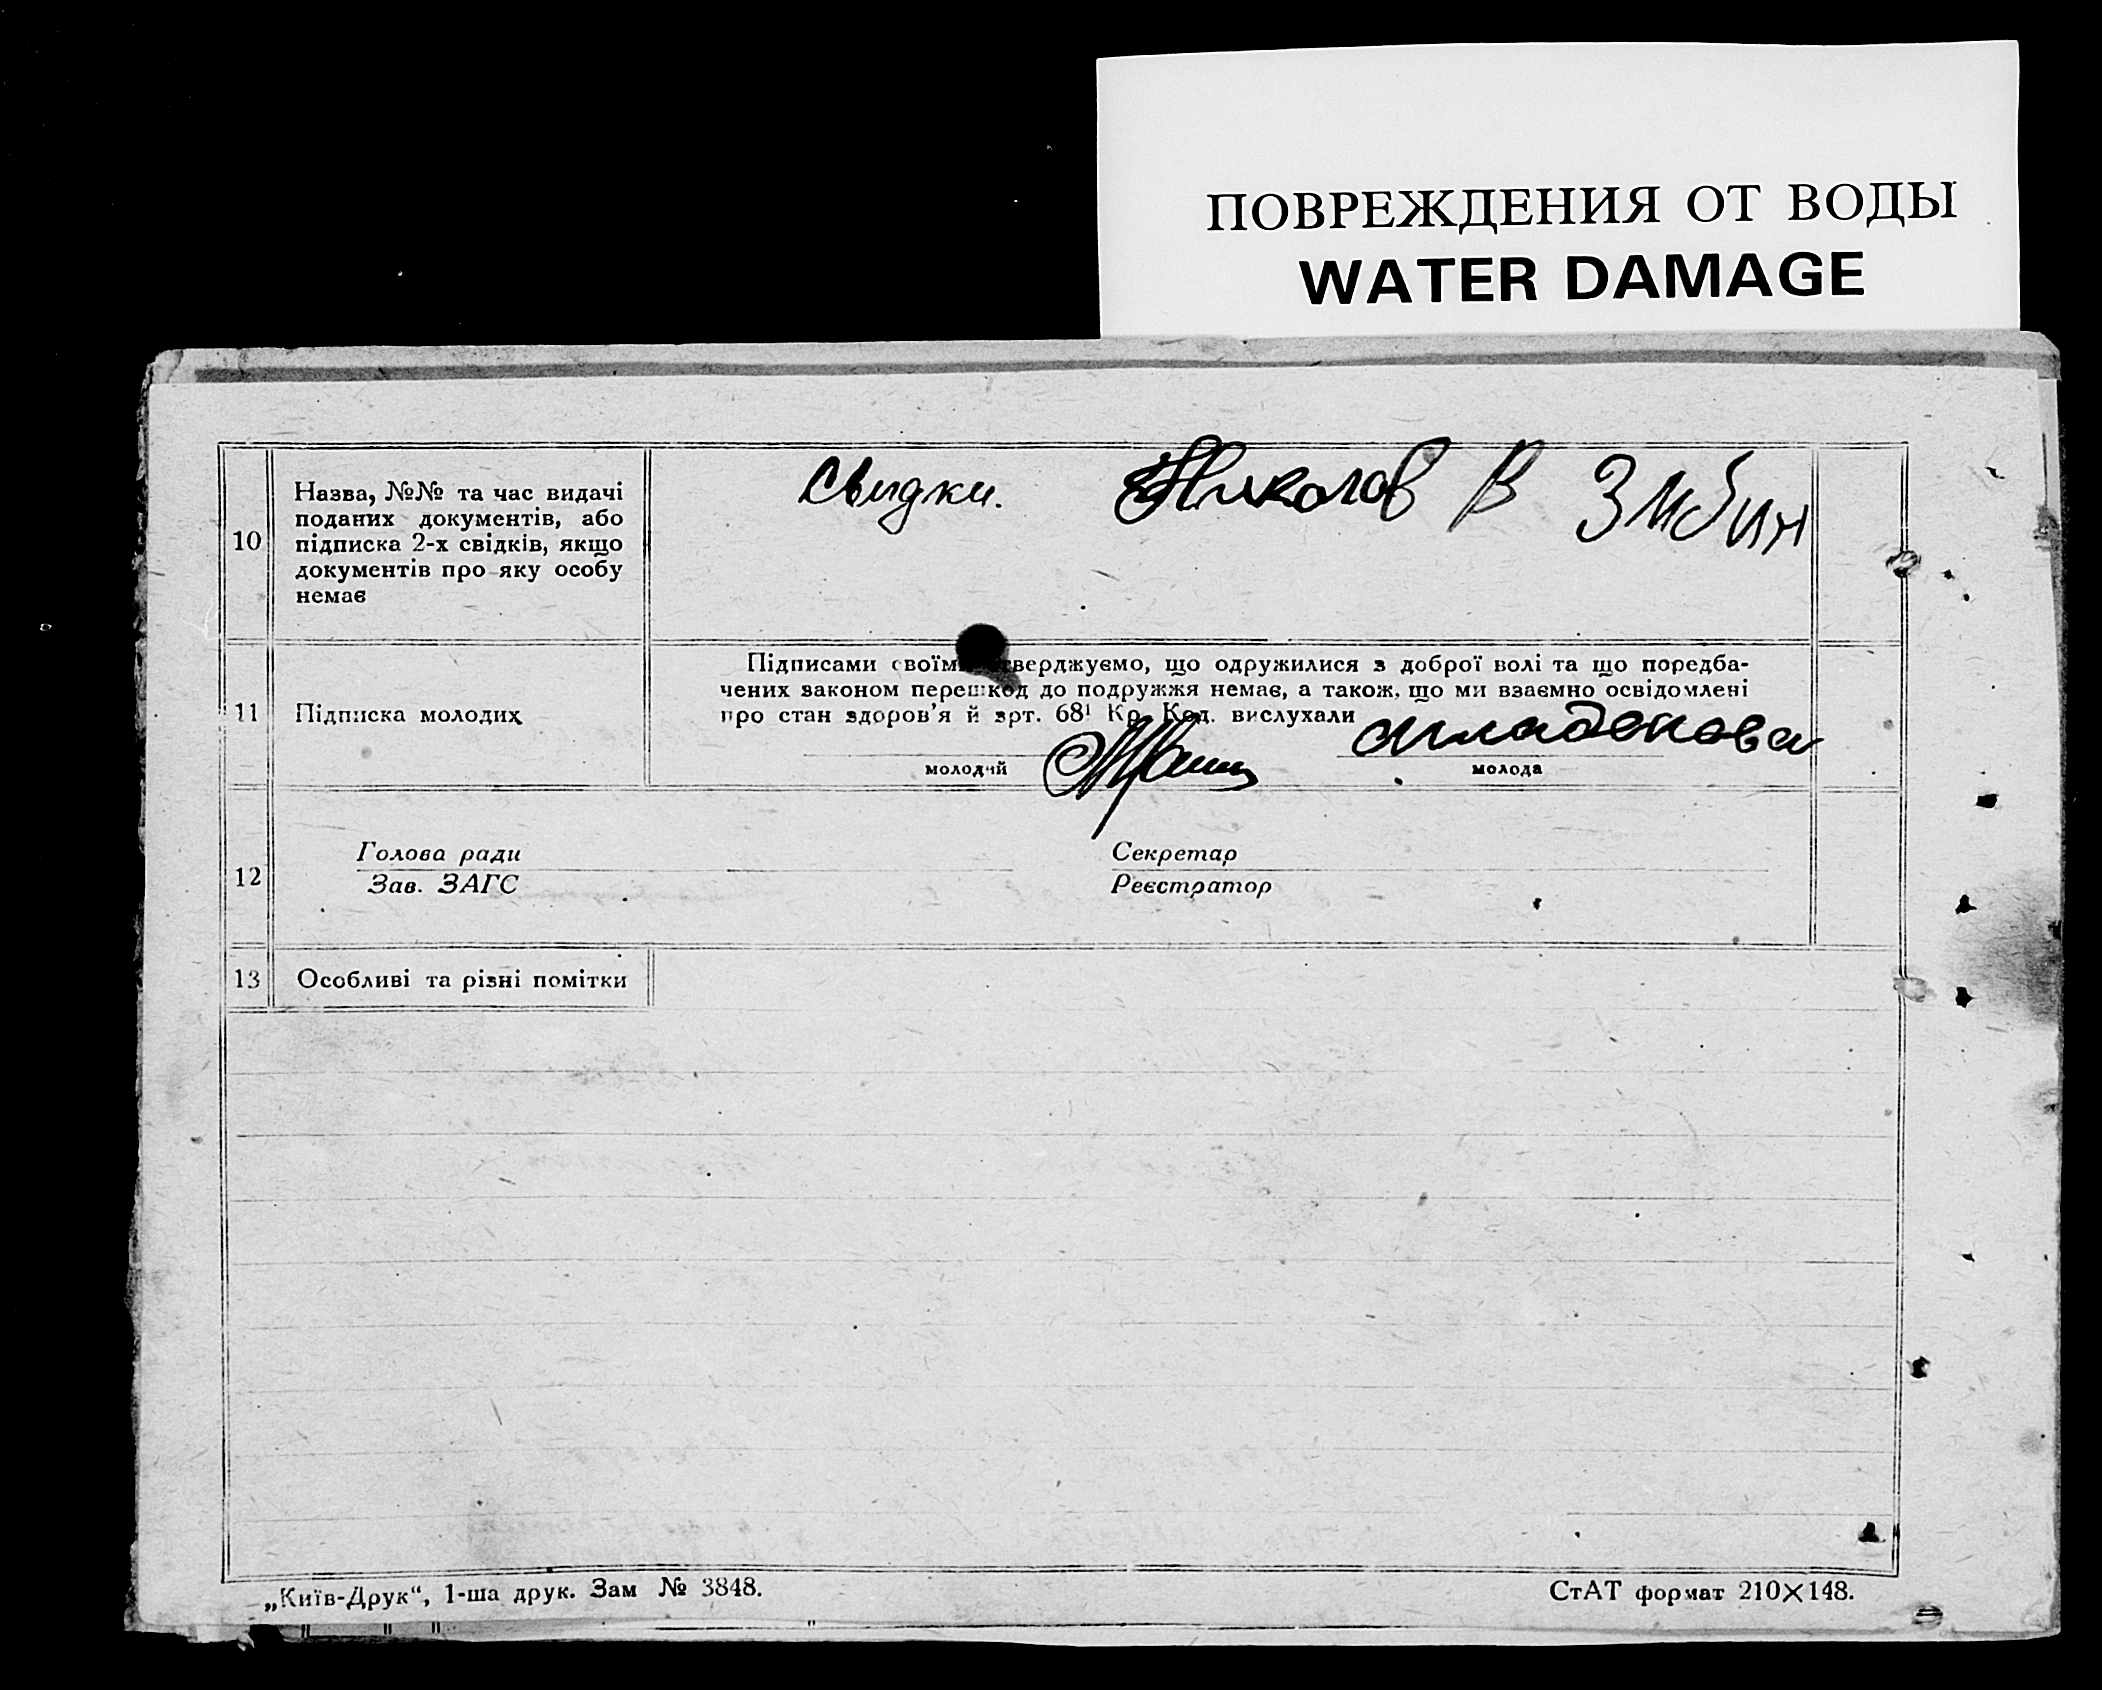 ПОВРЕЖДЕНИЯ ОТ ВОДЫ
WATER DAMAGE
10
Назва, №№ та час видачі
поданих документів, або
підписка 2-х свідків, якщо
документів про яку особу
немає
Свидки. Николов В
11
Підписка молодих
Підписами своїм верджуємо, що одружилися з доброї волі та що передба-
чених законом перешкод до подружжя немає, а також, що ми взаємно освідомлені
про стан здоров'я й арт. 68¹ Кр. Код. вислухали
Младенова
молодий
молода
12
Голова ради
Зав. ЗАГС
Секретар
Реєстратор
13
Особливі та різні помітки
„Київ-Друк“, 1-ша друк. Зам № 3848.
СтАТ формат 210×148.